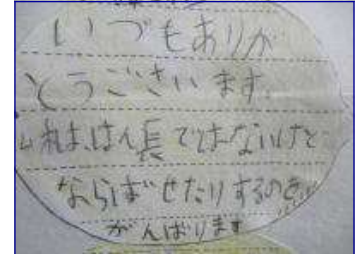 いつもありが
とうございます。
れは、はん長ではないけど
ならばせたりするのを
がんばります